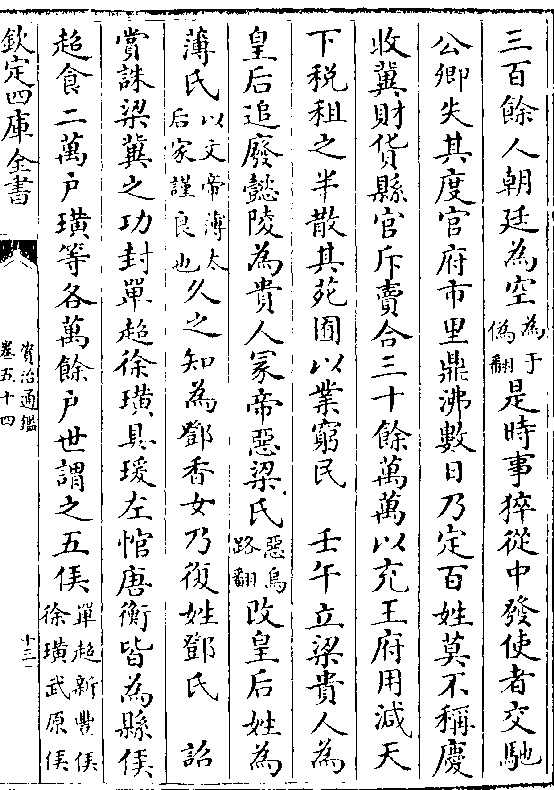 三百餘人朝廷為空為于偽翻是時事猝從中發使者交馳
公卿失其度官府市里鼎沸數日乃定百姓莫不稱慶
收冀財貨縣官斥賣合三十餘萬萬以充王府用減天
下税租之半散其苑囿以業窮民　壬午立梁貴人為
皇后追廢懿陵為貴人冢帝惡梁氏惡烏路翻改皇后姓為
薄氏以文帝薄太后家謹良也久之知為鄧香女乃復姓鄧氏　詔
賞誅梁冀之功封單超徐璜具瑗左悺唐衡皆為縣侯
超食二萬户璜等各萬餘户世謂之五侯單超新豐侯徐璜武原侯
欽定四庫全書
資治通鑑
卷五十四
十三